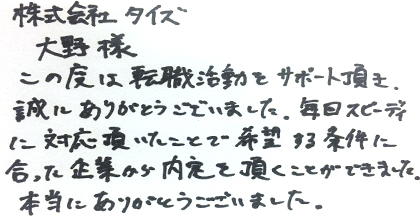 株式会社 タイズ
大野様
この度は転職活動をサポート頂き、
誠にありがとうございました。毎日スピーディ
に対応頂いたことで希望する条件に
合った企業から内定を頂くことができました。
本当にありがとうございました。